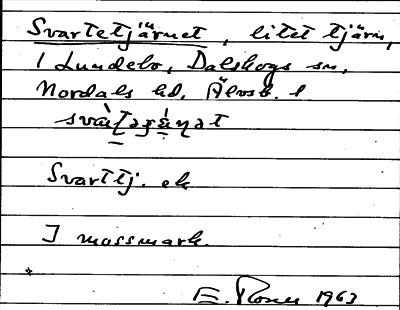 Svartetjärnet, litet tjärn,
i Lundebo, Dalskogs sn,
Nordals hd, Älvsb. l
Svarttj. ek
I mossmark.
E. Rosell 1963